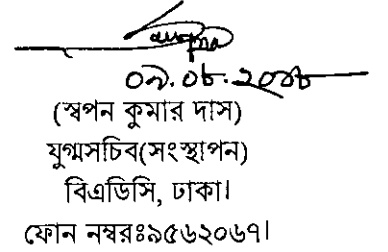 (স্বপন কুমার দাস)
যুগ্মসচিব(সংস্থাপন)
বিএডিসি, ঢাকা।
ফোন নম্বরঃ৯৫৬২০৬৭।